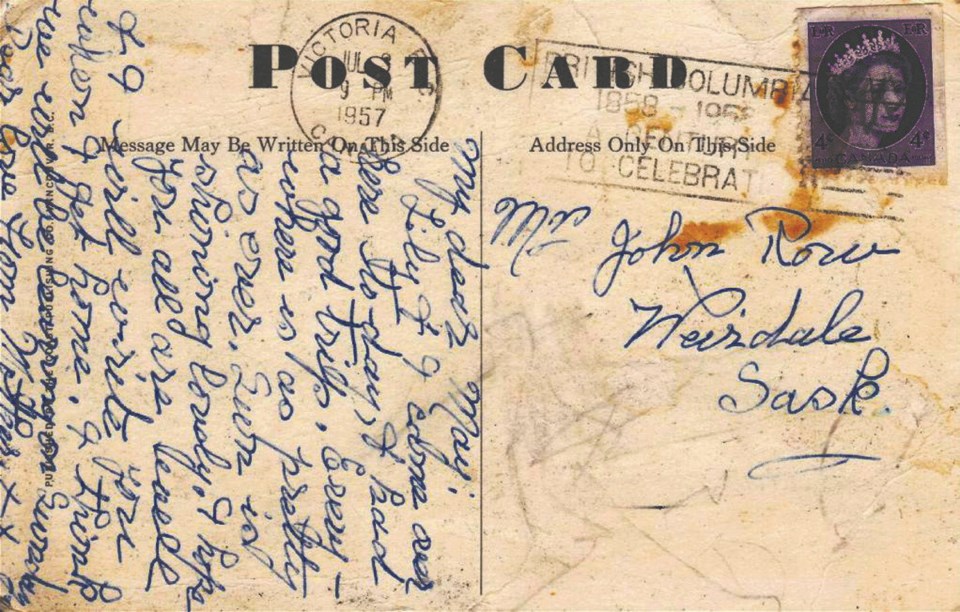 POST CARD
Message May Be Written On This Side
Address Only On This Side
VICTORIA
JUL
9 PM
1957
BRITISH COLUMBIA
1858 - 1958
A CENTURY
TO CELEBRATE
E R
4¢ 4¢
CANADA
Mrs John Row
Weirdale
Sask.
My dear May:
Lily & I came over
here to-day, & had
a good trip. Every-
where is as pretty
as ever. Sun is
shining lovely. I hope
you all are
I will write you
when I get home. I think
we will be leaving on Sunday
love from Mother x x
PUBLISHED PUBLISHING CO. VANCOUVER, B.C.